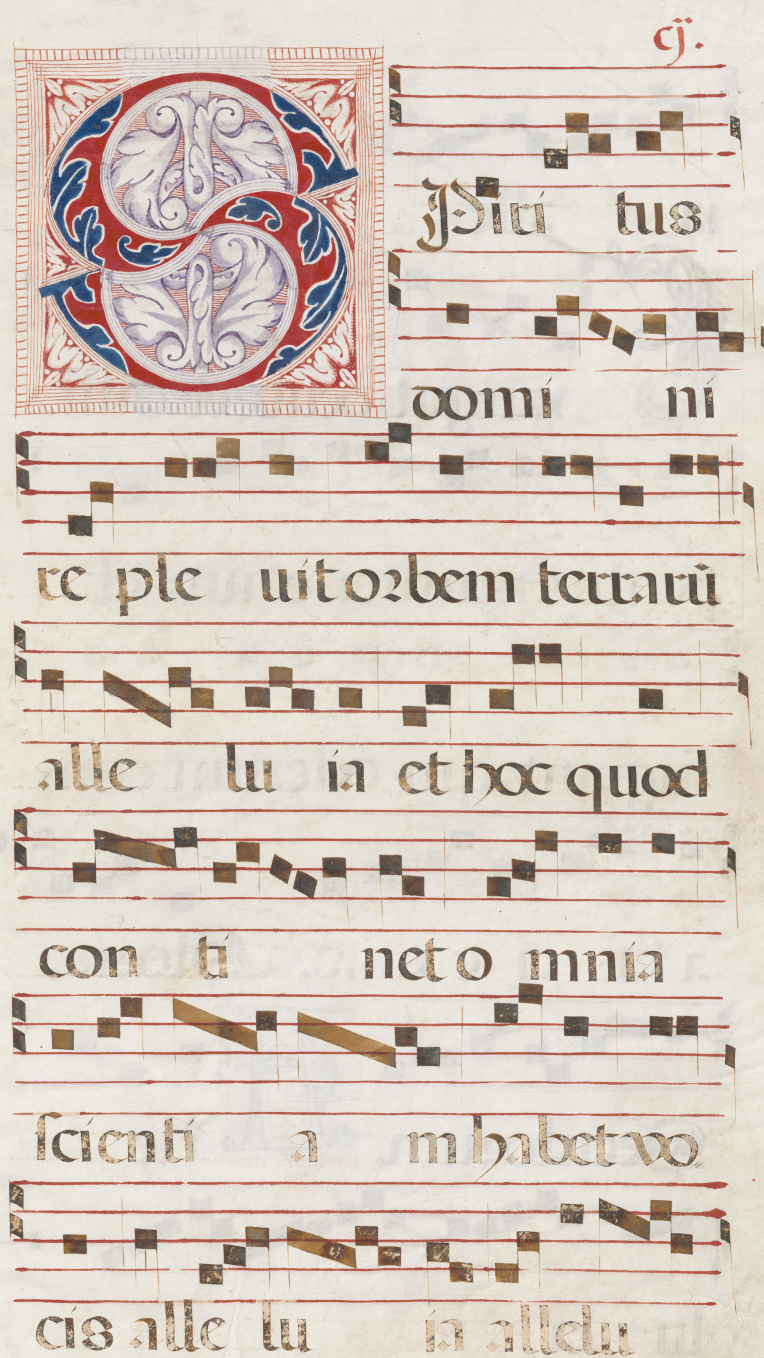 cij.
SPiri tus
domi ni
re ple uit orbem terrarū
alle lu ia et hoc quod
con ti net o mnia
scienti a m habet vo
cis alle lu ia allelu